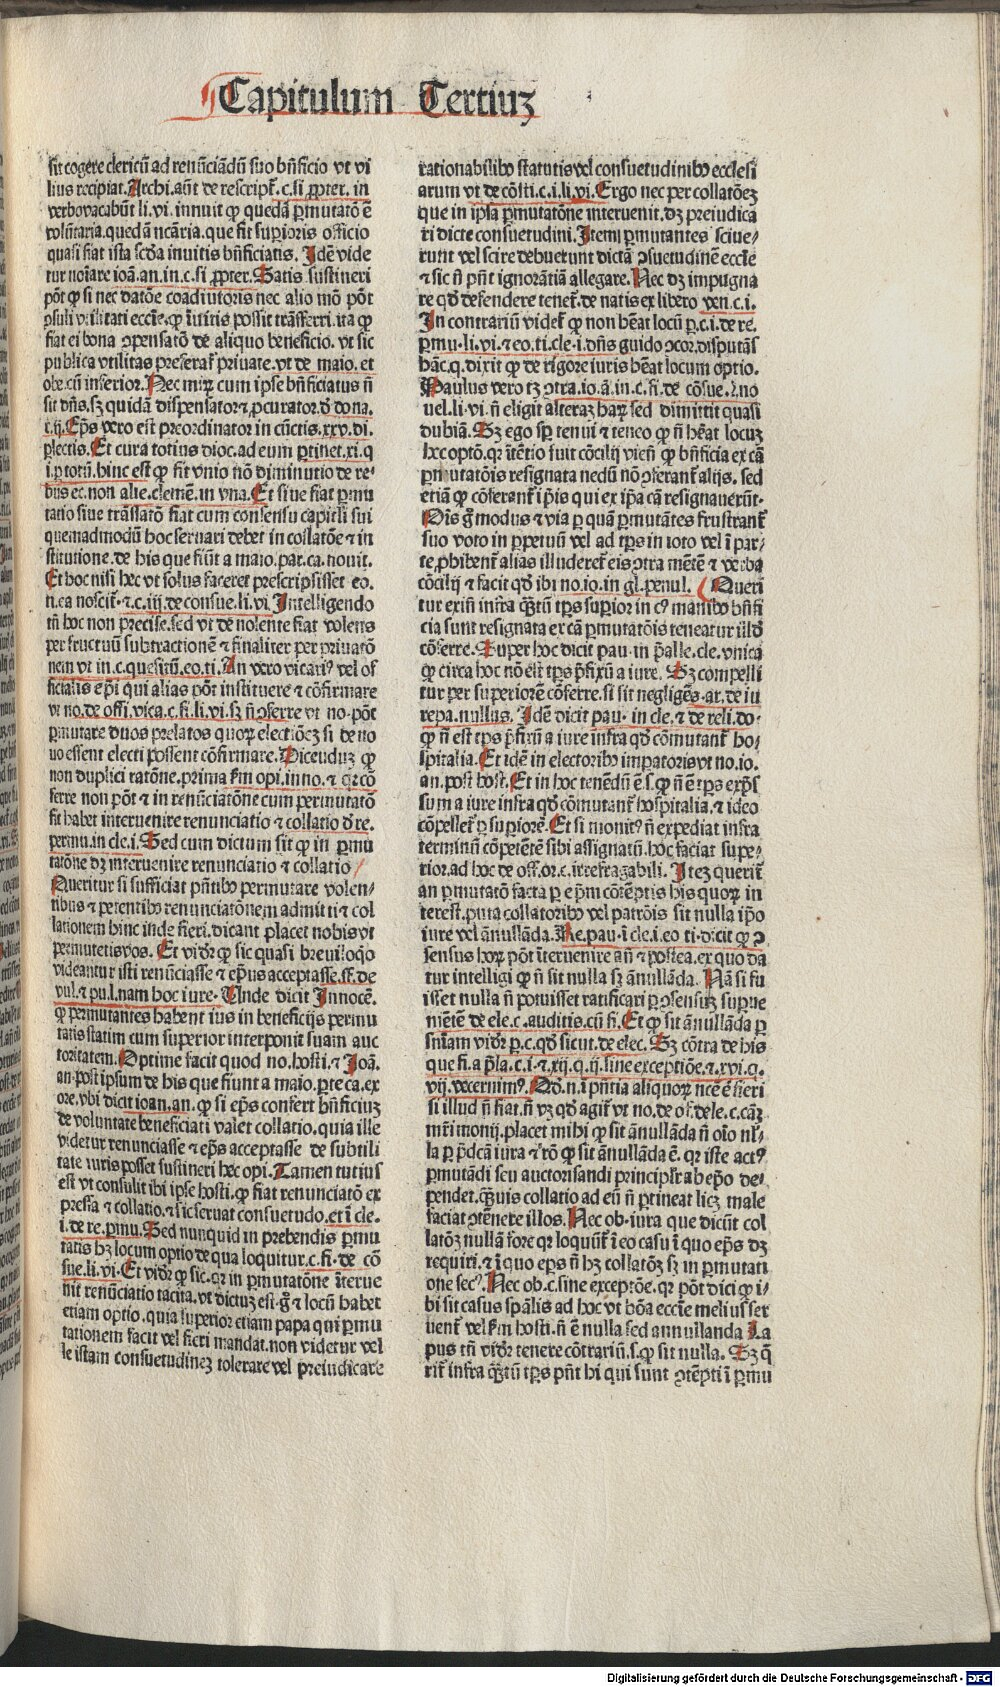 Capitulum Tertiuꝫ
sit cogere clericū ad renūciādū suo bn̄ficio vt vi
lius recipiat. Archi. aūt de rescript̄. c. si ꝓpter. in
verbo vacabūt li. vi. innuit ꝙ quedā ꝑmutatō ē
volūtaria. quedā ncāria. que fit suꝑioris officio
quasi fiat ista scd̄a inuitis bn̄ficiatis. Idē vide
tur notare ioā. an. in. c. si ꝓpter. Satis sustineri
pōt ꝙ si nec datōe coadiutoris nec alio mō pōt
ꝯsuli vtilitati eccl̄ie. ꝙ īuitis possit trāsferri. ita ꝙ
fiat ei bona ꝯpensatō de aliquo beneficio. vt sic
publica vtilitas preferat̄ priuate. vt de maio. et
obe. cū inferior. Nec mirꝝ cum ipse bn̄ficiatus n̄
sit dn̄s. sꝫ quidā dispensator ⁊ ꝓcurator. d̄ dona.
i. ij. Ep̄s vero est preordinator in cūctis. xxv. di.
ꝑlectis. Et cura totius dioc. ad eum ꝑtinet. xi. q
i. ꝑ totū. hinc est ꝙ fit vnio nō diminutio de re-
bus ec. non alie. clemē. in vna. Et siue fiat ꝑmu
tatio siue trāslatō fiat cum consensu capitli sui
quemadmodū hoc seruari debet in collatōe ⁊ in
stitutione. de his que fiūt a maio. par. ca. nouit.
Et hoc nisi hec vt solus faceret prescripsisset eo.
n. ea noscit̄. ⁊. c. iij. de consue. li. vi. Intelligendo
tn̄ hoc non precise. sed vt de nolente fiat volens
per fructuū subtractionē ⁊ finaliter per priuatō
nem vt in. c. quesitū. eo. ti. An vero vicariꝰ vel of
ficialis ep̄i qui alias pōt instituere ⁊ cōfirmare
vt no. de offi. vica. c. fi. li. vi. sꝫ n̄ ꝯferre vt no. pōt
ꝑmutare duos prelatos quorꝝ electiōeꝫ si de no
uo essent electi possent cōfirmare. Dicenduꝫ ꝙ
non duplici ratōne. prima ẜm opi. inno. ⁊ qꝛ cō
ferre non pōt ⁊ in renūciatōne cum permutatō
fit habet interuenire renunciatio ⁊ collatio d̄ re.
permu. in cle. i. Sed cum dictum sit ꝙ in ꝑmu
tatōne dꝫ interuenire renunciatio ⁊ collatio
Queritur si sufficiat pn̄tibꝰ permutare volen-
tibus ⁊ petentibꝰ renunciatōnem admitti ⁊ col
lationem hinc inde fieri. dicant placet nobis vt
permutetis vos. Et vid̄r ꝙ sic quasi breuiloq̄o
videantur isti renūciasse ⁊ ep̄us acceptasse. ff. de
vul. ⁊ pu. l. nam hoc iure. Unde dicit Innocē.
ꝙ permutantes habent ius in beneficijs permu
tatis statim cum superior interponit suam auc
toritatem. Optime facit quod no. hosti. ⁊ Joā.
an. post ipsum de his que fiunt a maio. ꝑte ca. ex
ore. vbi dicit ioan. an. ꝙ si ep̄s confert bn̄ficiuꝫ
de voluntate beneficiati valet collatio. quia ille
videtur renunciasse ⁊ ep̄s acceptasse de subtili
tate iuris posset sustineri hec opi. Tamen tutius
est vt consulit ibi ipse hosti. ꝙ fiat renunciatō ex
pressa ⁊ collatio. ⁊ sic seruat consuetudo. et ī cle.
i. de re. ꝑmu. Sed nunquid in prebendis ꝑmu
tatis hꝫ locum optio de qua loquitur. c. fi. de cō
sue. li. vi. Et vid̄r ꝙ sic. qꝛ in ꝑmutatōne īterue
nit renūciatio tacita. vt dictuꝫ est. g̊ ⁊ locū habet
etiam optio. quia superior etiam papa qui ꝑmu
tationem facit vel fieri mandat. non videtur vel
le istam consuetudineꝫ tolerare vel preiudicare
rationabilibꝰ statutis vel consuetudinibꝰ ecclesi
arum vt de cōsti. c. i. li. vi. Ergo nec per collatōeꝫ
que in ipsa ꝑmutatōne interuenit. dꝫ preiudica
ri dicte consuetudini. Item ꝑmutantes sciue-
runt vel scire debuerunt dictā ꝯsuetudinē eccl̄ie
⁊ sic n̄ pn̄t ignorātiā allegare. Nec dꝫ impugna
re qd̄ defendere tenet̄. de natis ex libero ven. c. i.
In contrariū videt̄ ꝙ non hēat locū ꝑ. c. i. de re.
ꝑmu. li. vi. ⁊ eo. ti. cle. i. dn̄s guido ꝯcor. disputās
hāc. q. dixit ꝙ de rigore iuris hēat locum optio.
Paulus vero tꝫ ꝯtra. io. ā. in. c. fi. de cōsue. i. no
uel. li. vi. n̄ eligit alteraꝫ harꝝ sed dimittit quasi
dubiā. Sꝫ ego sp̄ tenui ⁊ teneo ꝙ n̄ hēat locuꝫ
hec optō. qꝛ ītētio fuit cōcilij vien̄ ꝙ bn̄ficia ex cā
ꝑmutatōis resignata nedū nō ꝯferant̄ alijs. sed
etiā ꝙ cōferant̄ īp̄is qui ex ip̄a cā resignauerūt.
Oīs g̊ modus ⁊ via ꝑ quā ꝑmutātes frustrant̄
suo voto in ꝑpetuū vel ad tp̄s in toto vel ī par-
te. ꝓhibent̄ alias illuderet̄ eis ꝯtra mētē ⁊ verba
cōcilij ⁊ facit qd̄ ibi no. io. in gl. penul. Queri
tur etiā infra q̄ꝫtū tp̄s suꝑior in cꝰ manibꝰ bn̄fi
cia sunt resignata ex cā ꝑmutatōis teneatur illd̄
cōferre. Super hoc dicit pau. in p̄alle. cle. vnica
ꝙ circa hoc nō est tp̄s p̄fixū a iure. Sꝫ compelli
tur per superiorē cōferre. si sit negligēs. ar. de iu
repa. nullus. Idē dicit pau. in cle. ⁊ de reli. do.
ꝙ n̄ est tp̄s p̄fixū a iure infra qd̄ cōmutant̄ ho-
spitalia. Et idē in electoribꝰ imperatoris vt no. io.
an. post host. Et in hoc tenēdū ē. s. ꝙ n̄ ē tp̄s exp̄s
sum a iure infra qd̄ cōmutant̄ hospitalia. ⁊ ideo
cōpellet̄ ꝑ suꝑiorē. Et si monitꝰ n̄ expediat infra
terminū cōpetētē sibi assignatū. hoc faciat supe-
rior. ad hoc de off. or. c. irrefragabili. Iteꝫ querit̄
an ꝑmutatō facta ꝑ ep̄m cōtēptis his quorꝝ in
terest. puta collatoribꝰ vel patrōis sit nulla ip̄o
iure vel ānullāda. Re. pau. ī cle. i. eo ti. dicit ꝙ ꝯ
sensus horꝝ pōt īteruenire an̄ ⁊ postea. ex quo da
tur intelligi ꝙ n̄ sit nulla sꝫ ānullāda. Nā si fu
isset nulla n̄ potuisset ratificari ꝑ ꝯsensuꝫ supue
niētē de ele. c. auditis. cū fi. Et ꝙ sit ānullāda ꝑ
sn̄iam vid̄r ꝑ. c. qd̄ sicut. de elec. Sꝫ cōtra de his
que fi. a p̄la. c. i. ⁊. xij. q. ij. sine exceptiōe. ⁊. xvi. q.
vij. decernimꝰ. Qd̄. n. ī pn̄tia aliquorꝝ ncē ē fieri
si illud n̄ fiat. n̄ vꝫ qd̄ agit̄ vt no. de of. dele. c. cāꝫ
mr̄imonij. placet mihi ꝙ sit ānullāda n̄ oīo nl̄-
la ꝑ p̄dcā iura ⁊ rō ꝙ sit ānullāda ē. qꝛ iste actꝰ
ꝑmutādi seu auctorisandi principlr̄ ab ep̄o de-
pendet. q̄ꝫuis collatio ad eū n̄ ꝑtineat licꝫ male
faciat ꝯtēnere illos. Nec ob. iura que dicūt col
latōꝫ nullā fore qꝛ loquūt̄ ī eo casu ī quo ep̄s dꝫ
requiri. ⁊ ī quo ep̄s n̄ hꝫ collatōꝫ sꝫ in ꝑmutati
one secꝰ. Nec ob. c. sine exceptōe. qꝛ pōt dici ꝙ i-
bi sit casus sp̄alis ad hoc vt bōa eccl̄ie melius ser
uent̄ vel ẜm hosti. n̄ ē nulla sed annullanda La
pus tn̄ vid̄r tenere cōtrariū. s. ꝙ sit nulla. Sꝫ q̄
rit̄ infra q̄ꝫtū tp̄s pn̄t hi qui sunt ꝯtēpti ī ꝑmu
Digitalisierung gefördert durch die Deutsche Forschungsgemeinschaft - DFG